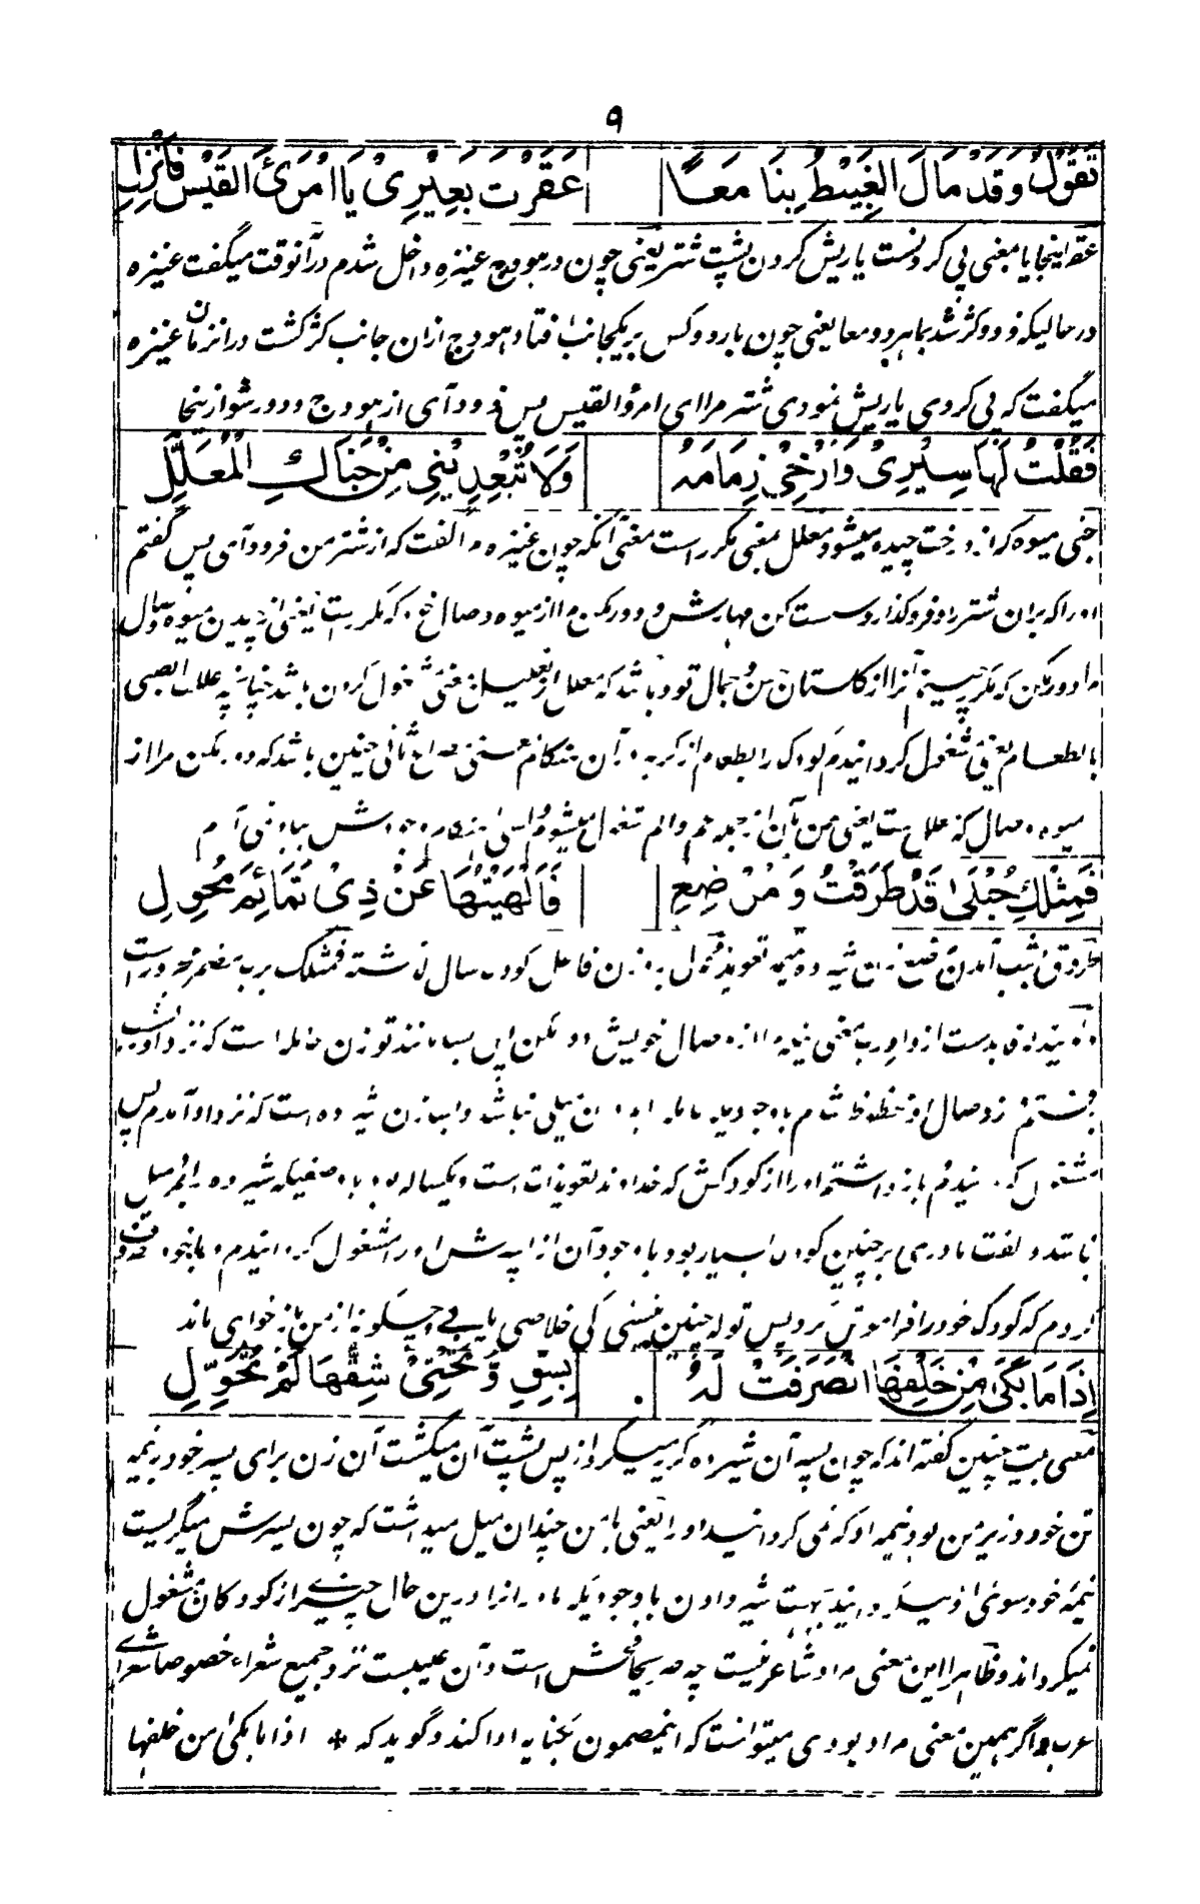 ۹
تَقُوْلُ وَقَدْ مَالَ الْغَبِيْطُ بِنَا مَعًا عَقَرْتَ بَعِيْرِيْ يَا امْرَئَ الْقَيْسِ فَانْزِلِ
عقر اینجا یا بمعنی پی کردنست یا ریش کردن پشت شتر یعنی چون در هودج عنیزه داخل شدم در آنوقت میگفت عنیزه
در حالیکه فرود کژ شد بما هر دو معا یعنی چون بار دو کس بریکجانب افتاد هودج ازان جانب کژ گشت در انزمان عنیزه
میگفت که پی کردی یا ریش نمودی شتر مرا ای امرؤ القیس پس فرود آی از هودج و دور شو از ینجا
فَقُلْتُ لَهَا سِيْرِيْ وَاَرْخِيْ زِمَامَهُ وَلَا تُبْعِدِيْنِيْ مِنْ جَنَاكِ الْمُعَلَّلِ
جنی میوه که از درخت چیده میشود معلل بمعنی مکرر است معنی آنکه چون عنیزه مرا گفت که از شتر من فرود آی پس گفتم
او را که بران شتر را و فروگذار و سست کن مهارش و دور مکن مرا از میوه وصال خود که مکرر است یعنی از چیدن میوه وصال
مرا دور مکن که مکرر چینم آنرا از گلستان حسن و جمال تو و باشد که معلل از تعلیل بمعنی مشغول کردن باشد چنانچه عللت الصبی
بالطعام یعنی مشغول گردانیدم کودک را بطعام از گریه و آن هنگام معنی مصراع ثانی چنین باشد که دور مکن مرا از
میوه وصال که معلل است یعنی من بآن از جمله هم و الم مشغول میشوم
فَمِثْلُكِ حُبْلٰى قَدْ طَرَقْتُ وَمُرْضِعِ فَاَلْهَيْتُهَا عَنْ ذِيْ تَمَائِمَ مُحْوِلِ
طروق بشب آمدن مرضع زن شیر ده تمیمه تعویذ محول بوزن فاعل کودک سال گذشته فمثلک برب مضمر مجرور است
خویش دور مکن ای بسا مانند تو زن حامله است که نزد او بشب
باوجودیکه حامله را میلی نباشد و بسا زن شیر ده است که نزد او آمدم پس
مشغول گردانیدم و باز داشتم او را از کودکش که خداوند تعویذات است و یکساله بود باوصفیکه شیر ده را کم میل
باشد و الفت مادری بر چنین کودک بسیار بود باوجود آن از پسرش او را مشغول گردانیدم و با خود
کردم که کودک خود را فراموش کرد پس تو که چنین نیستی کی خلاصی یابی و چگونه از من باز خواهی ماند
اِذَا مَا بَكٰى مِنْ خَلْفِهَا انْصَرَفَتْ لَهُ بِشِقٍّ وَّتَحْتِيْ شِقُّهَا لَمْ يُحَوَّلِ
معنی بیت چنین گفته اند که چون پسر آن شیرده گریه میکرد از پس پشت آن میگشت آن زن برای پسر خود به نیمه
تن خود و زیر من بود نیمه او که نمی گردانید او را یعنی با من چندان میل میداشت که چون پسرش میگریست
نیمه خود سوی او میگردانید بجهت شیر دادن باوجودیکه مادر را درین حال چیزے از کودکان مشغول
نمیگرداند و ظاهرا این معنی مراد شاعر نیست چه مدیحه فحش است و آن عیبست نزد جمیع شعراء خصوصا شعرای
عرب و اگر همین معنی مراد بودی میتوانست که اینمضمون بکنایه ادا کند و گوید که * اذا ما بکی من خلفها